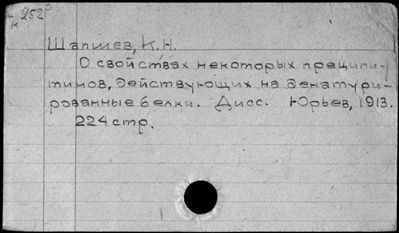 К 252
Шапшев, К. Н.
О свойствах некоторых преципи-
тинов, действующих на денатури-
рованные белки. Дисс. Юрьев, 1913.
224 стр.